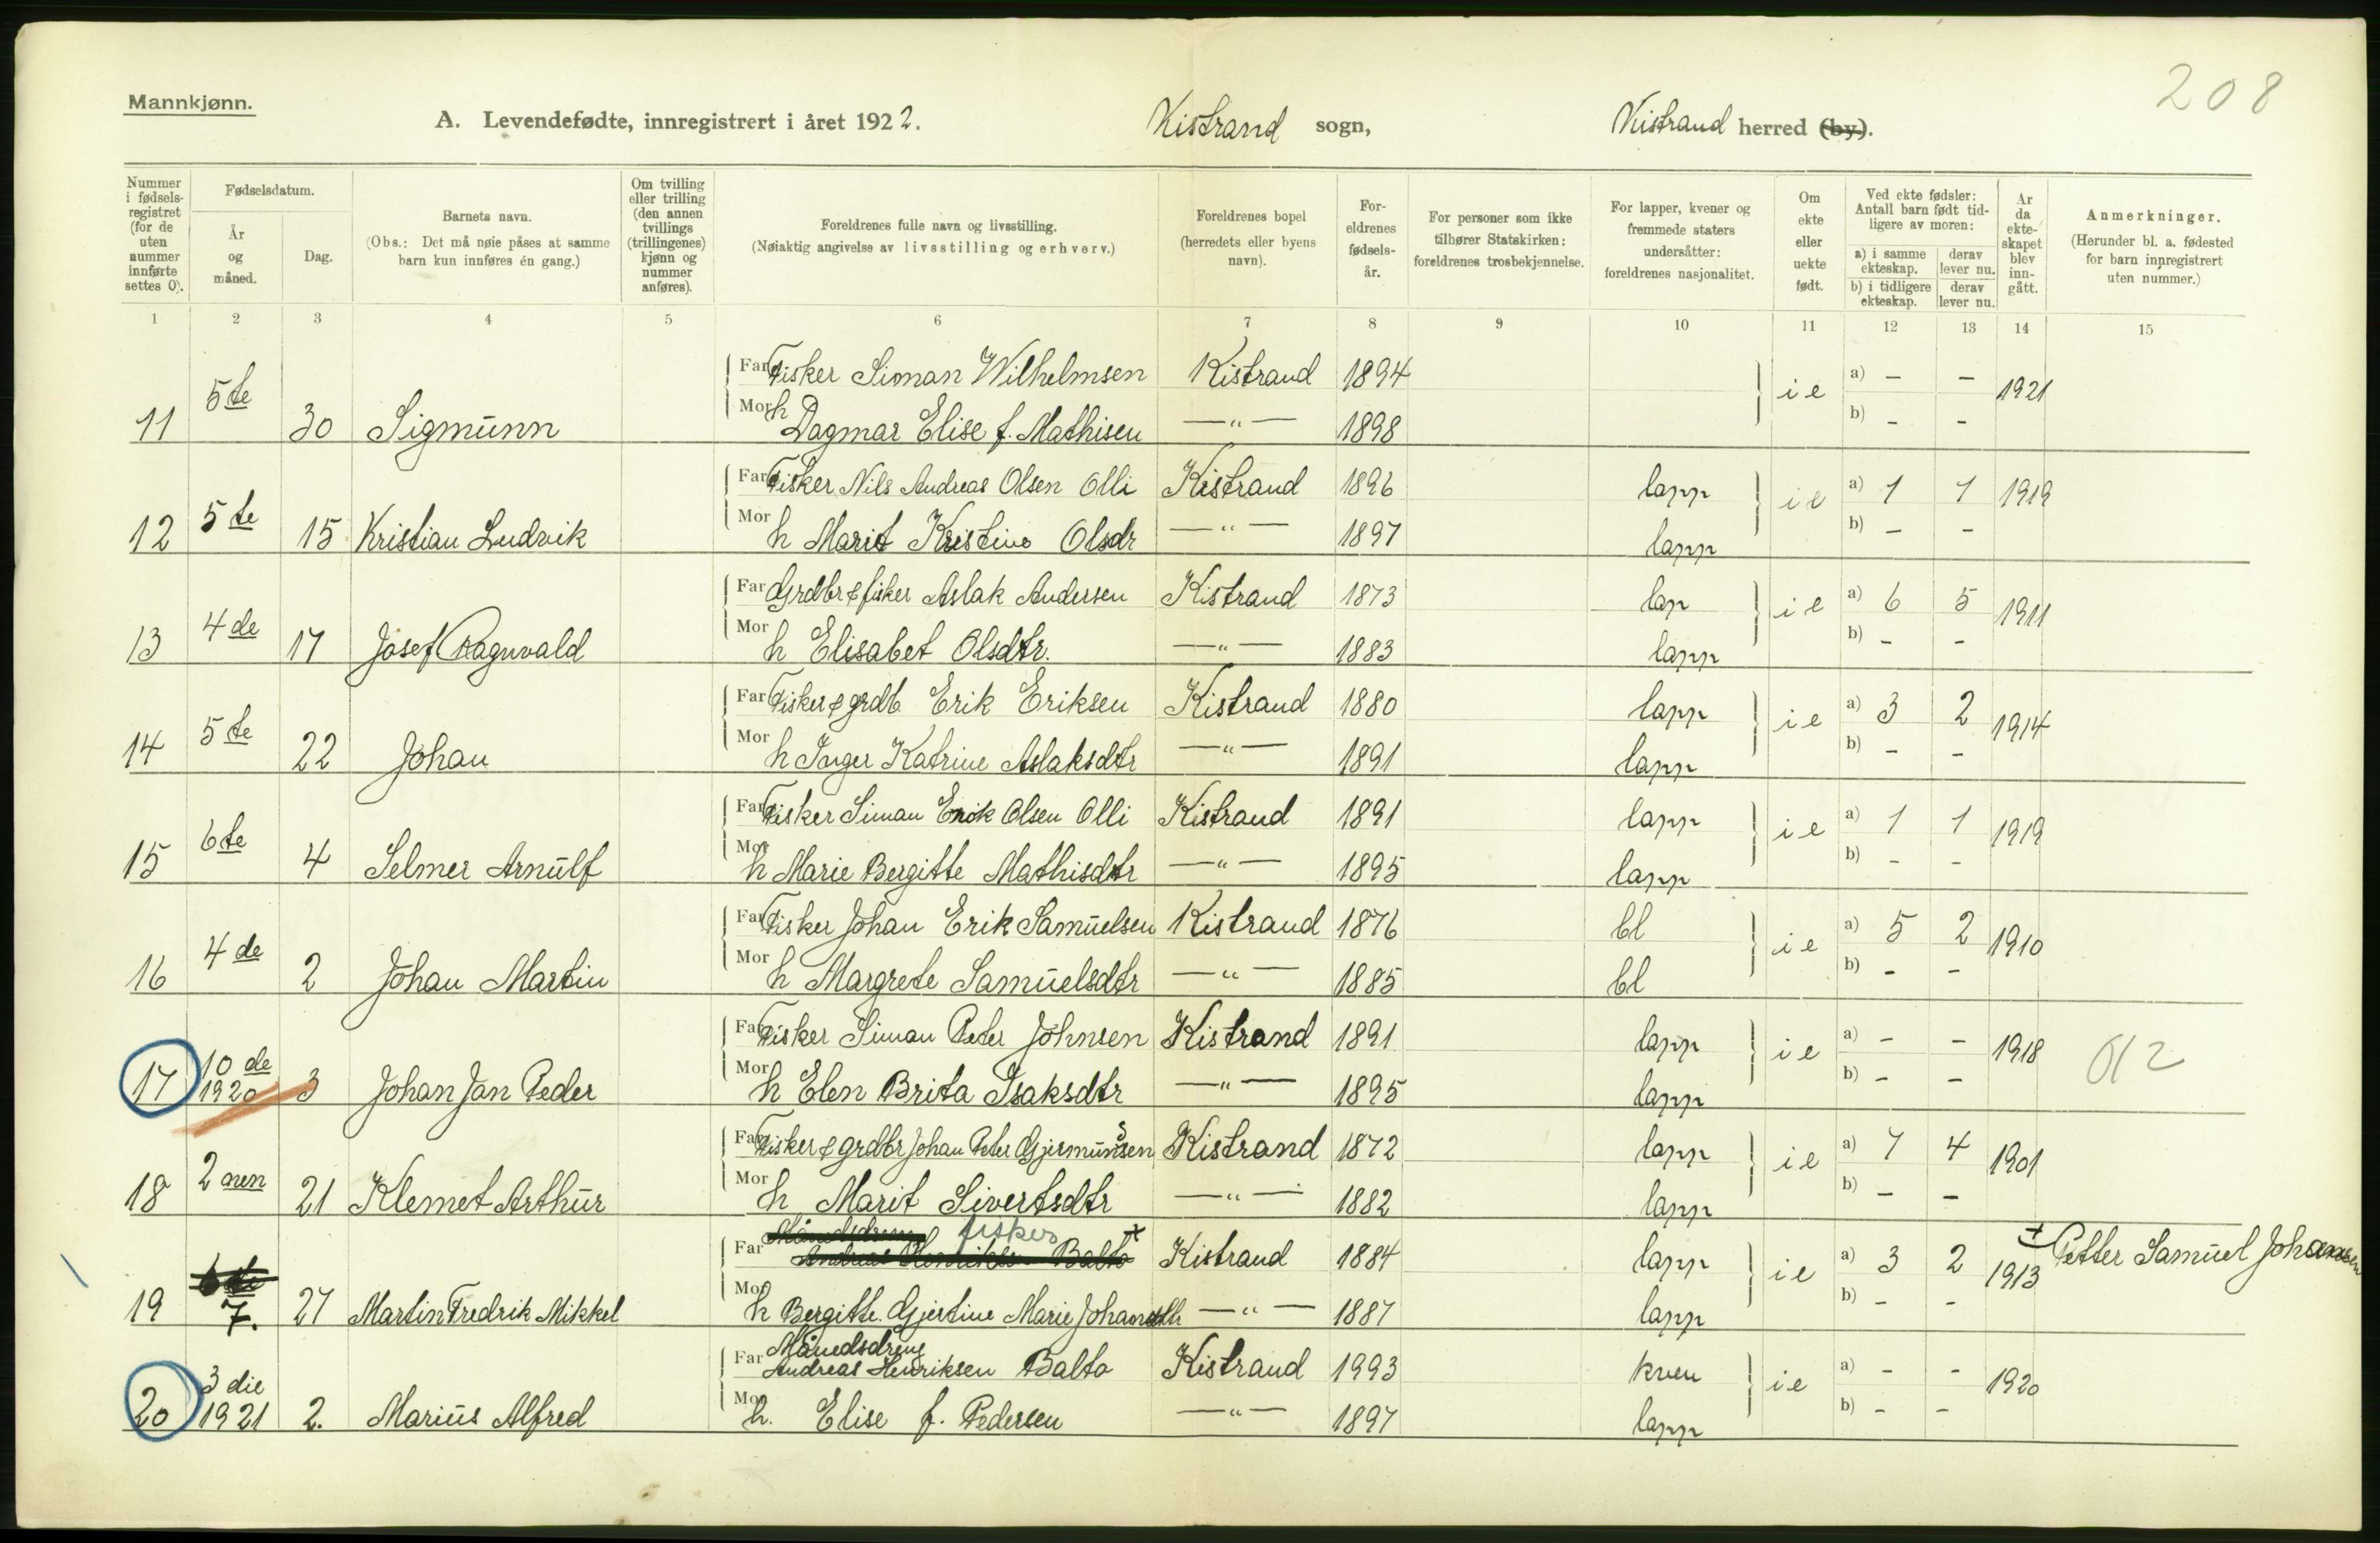 208
Mannkjønn.
A. Levendefødte, innregistrert i året 1922. Kistrand sogn, Kistrand herred (by).
Nummer i fødsels-registret (for de uten nummer innførte settes 0).
Fødselsdatum.
År og måned.
Dag.
Barnets navn.
(Obs.: Det må nøie påses at samme barn kun innføres én gang.)
Om tvilling eller trilling (den annen tvillings (trillingenes) kjønn og nummer anføres).
Foreldrenes fulle navn og livsstilling.
(Nøiaktig angivelse av livsstilling og erhverv.)
Foreldrenes bopel (herredets eller byens navn).
For-eldrenes fødsels-år.
For personer som ikke tilhører Statskirken: foreldrenes trosbekjennelse.
For lapper, kvener og fremmede staters undersåtter: foreldrenes nasjonalitet.
Om ekte eller uekte født.
Ved ekte fødsler: Antall barn født tid-ligere av moren:
a) i samme ekteskap. derav lever nu.
b) i tidligere ekteskap. derav lever nu.
År da ekte-skapet blev inn-gått.
Anmerkninger.
(Herunder bl. a. fødested for barn innregistrert uten nummer.)
1 2 3 4 5 6 7 8 9 10 11 12 13 14 15
Far Fisker Siman Wilhelmsen Kistrand 1894 ie a) – – 1921
11 5te 30 Sigmunn Mor h Dagmar Elise f. Mathisen —"— 1898 b) – –
Far Fisker Nils Andreas Olsen Olli Kistrand 1896 lapp ie a) 1 1 1919
12 5te 15 Kristian Ludvik Mor h Marit Kristine Olsdr —"— 1897 lapp b) – –
Far Grdbr & fisker Aslak Andersen Kistrand 1873 lap ie a) 6 5 1911
13 4de 17 Josef Ragnvald Mor h Elisabet Olsdtr. —"— 1883 lapp b) – –
Far Fisker & grdb Erik Eriksen Kistrand 1880 lapp ie a) 3 2 1914
14 5te 22 Johan Mor h Inger Katrine Aslaksdtr —"— 1891 lapp b) – –
Far Fisker Siman Erik Olsen Olli Kistrand 1891 lapp ie a) 1 1 1919
15 6te 4 Selmer Arnulf Mor h Marie Bergitte Mathisdtr —"— 1895 lapp b) – –
Far Fisker Johan Erik Samuelsen Kistrand 1876 bl ie a) 5 2 1910
16 4de 2 Johan Martin Mor h Margrete Samuelsdtr —"— 1885 bl b) – –
Far Fisker Siman Peter Johnsen Kistrand 1891 lapp ie a) – – 1918
17 10de 1920 3 Johan Jan Peder Mor h Elen Brita Isaksdtr —"— 1895 lapp b) – –
Far Fisker & grdbr Johan Peter Gjermunsen Kistrand 1872 lapp ie a) 7 4 1901
18 2nen 21 Klemet Arthur Mor h Marit Sivertsdtr —"— 1882 lapp b) – –
Månedsdreng fisker
Far Andreas Henriksen Balto + Kistrand 1884 lapp ie a) 3 2 1913 + Petter Samuel Johansen
19 6te 7. 27 Martin Fredrik Mikkel Mor h Bergitte Gjertine Marie Johansdtr —"— 1887 lapp b) – –
Månedsdreng
Far Andreas Henriksen Balto Kistrand 1993 kven ie a) – – 1920
20 3die 1921 2. Marius Alfred Mor h. Elise f. Pedersen —"— 1897 lapp b) – –